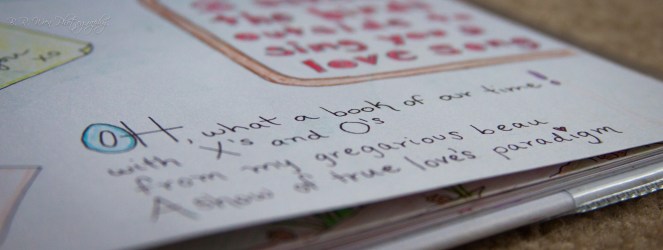 outside
sing you a
love song
xo
OH, what a book of our time!
with X's and O's
from my gregarious beau
A show of true love's paradigm